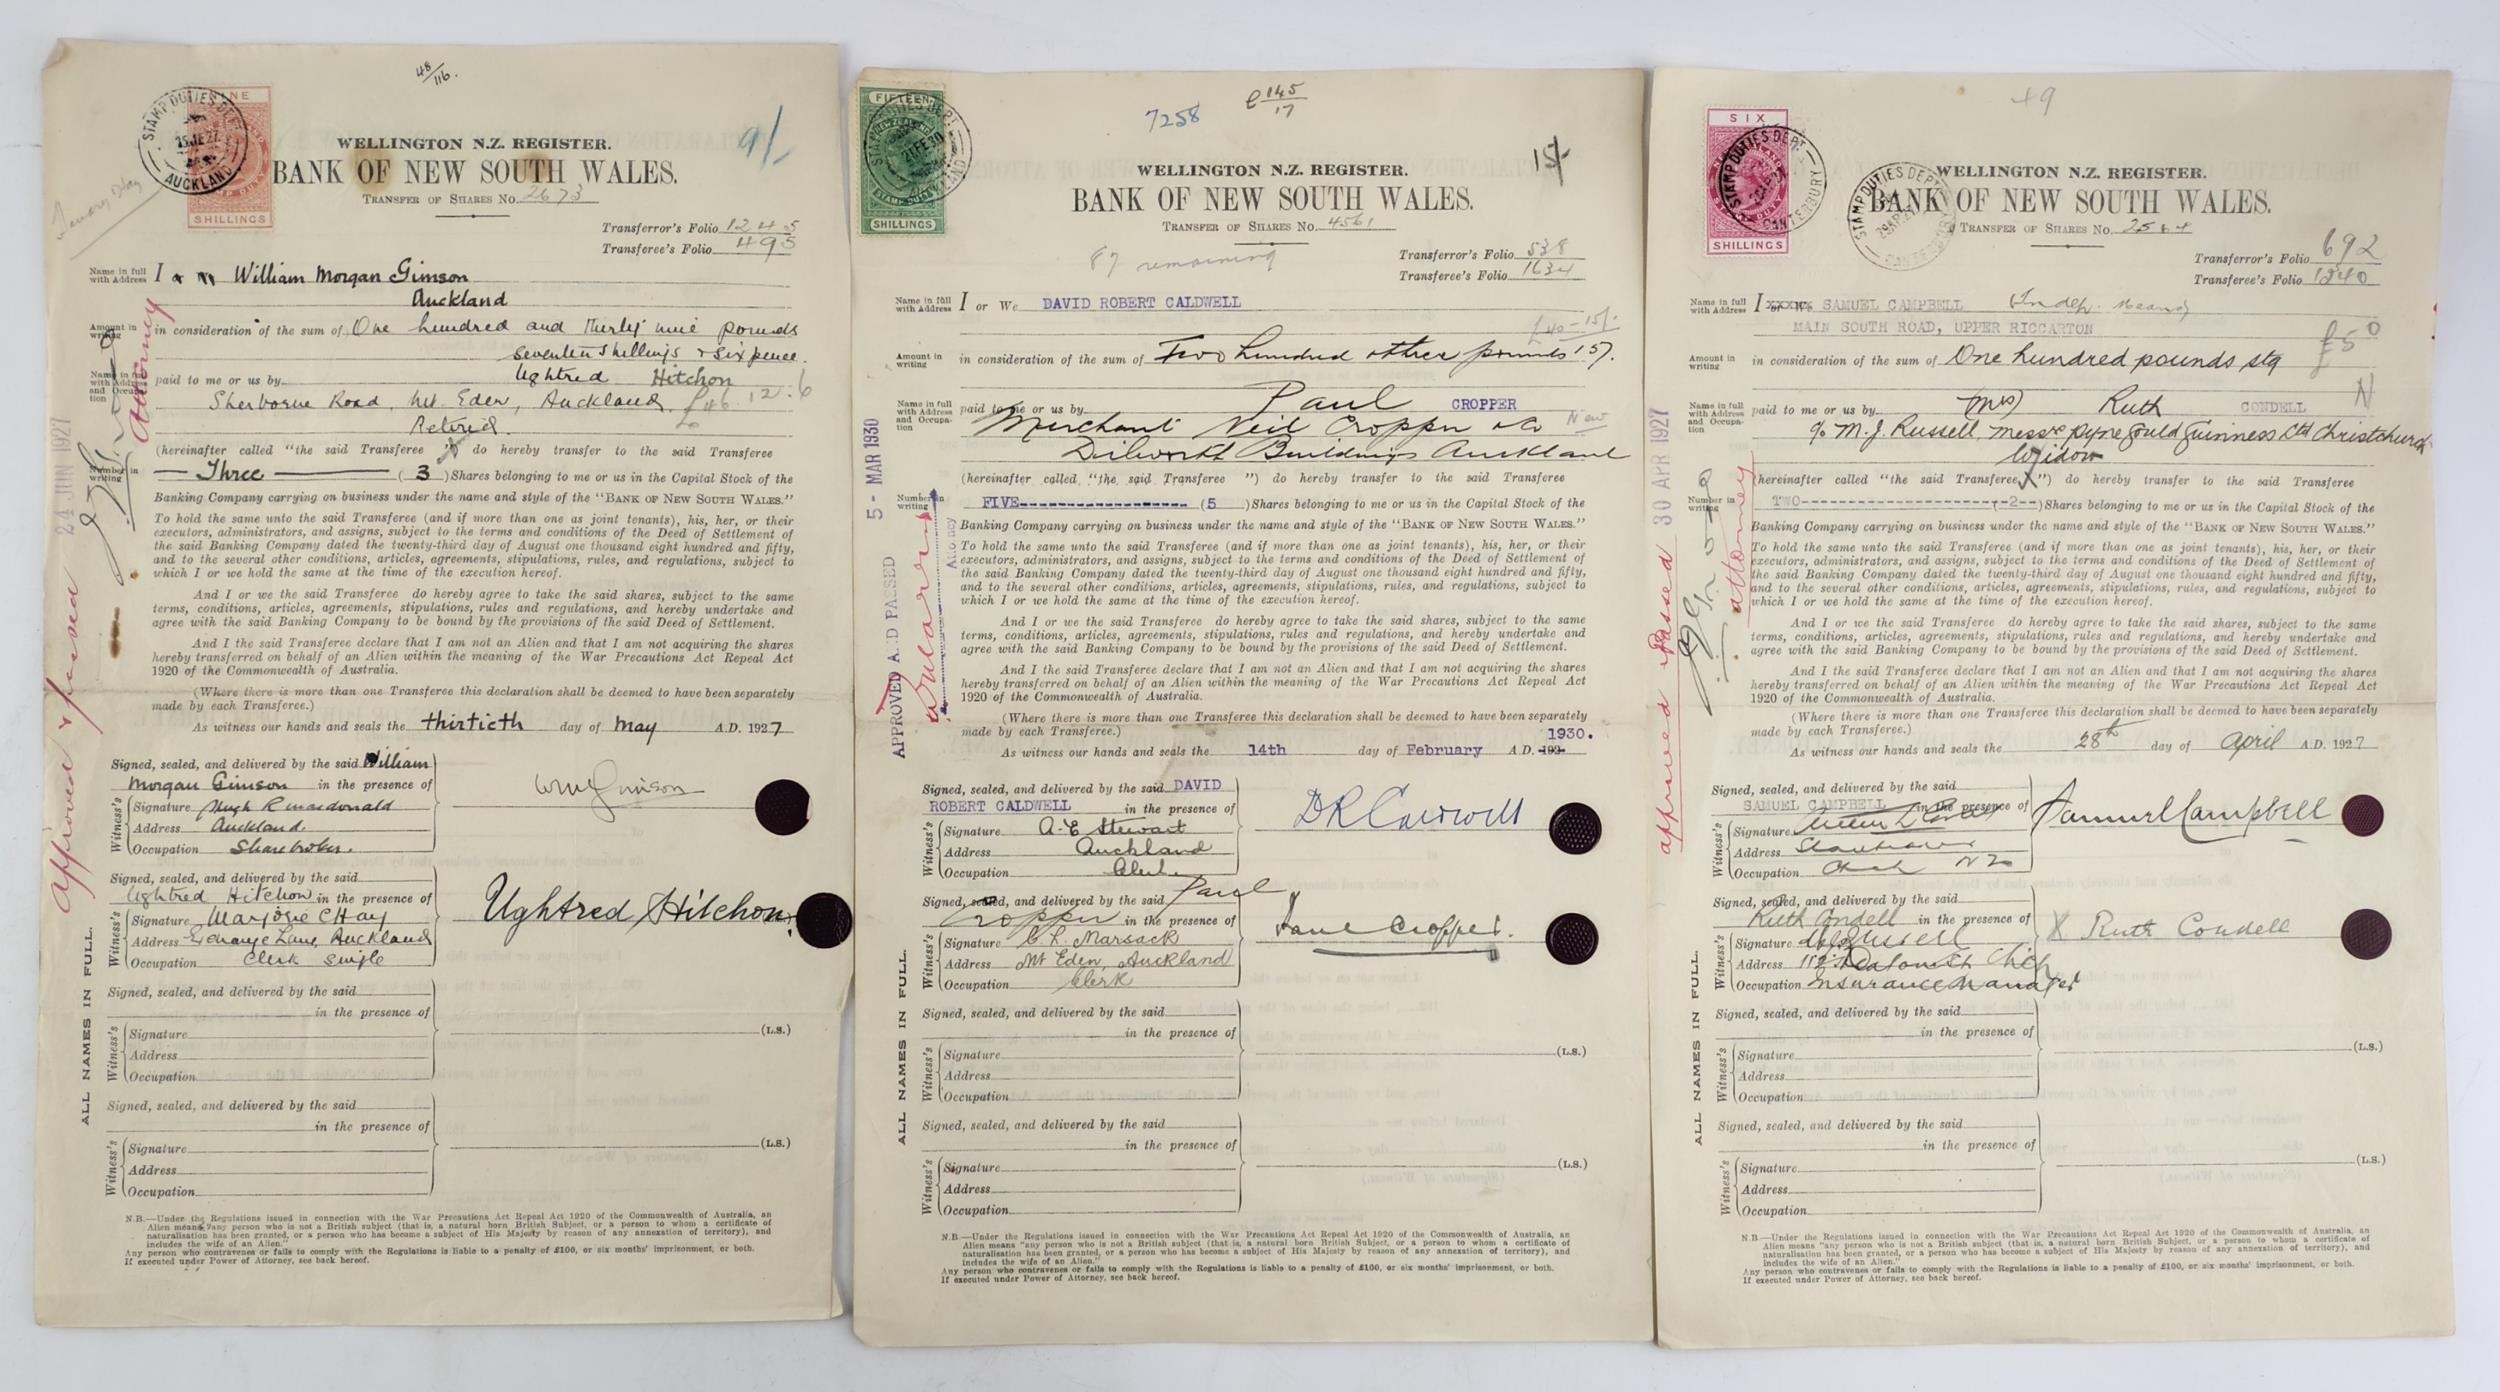 48/116.
NINE
STAMP DUTIES DEPT
AUCKLAND
SHILLINGS
9/-
WELLINGTON N.Z. REGISTER.
BANK OF NEW SOUTH WALES.
TRANSFER OF SHARES No. 2673
Transferror's Folio 1245
Transferee's Folio 495
Name in full with Address I William Morgan Gimson
Auckland
Amount in writing in consideration of the sum of One hundred and thirty nine pounds
seventeen shillings & sixpence.
Name in full with Address and Occupation paid to me or us by Ughtred Hitchon
Sherborne Road, Mt. Eden, Auckland. £46.12.6
Retired.
(hereinafter called "the said Transferee ") do hereby transfer to the said Transferee
Number in writing — Three — ( 3 ) Shares belonging to me or us in the Capital Stock of the
Banking Company carrying on business under the name and style of the "BANK OF NEW SOUTH WALES."
To hold the same unto the said Transferee (and if more than one as joint tenants), his, her, or their
executors, administrators, and assigns, subject to the terms and conditions of the Deed of Settlement of
the said Banking Company dated the twenty-third day of August one thousand eight hundred and fifty,
and to the several other conditions, articles, agreements, stipulations, rules, and regulations, subject to
which I or we hold the same at the time of the execution hereof.
And I or we the said Transferee do hereby agree to take the said shares, subject to the same
terms, conditions, articles, agreements, stipulations, rules and regulations, and hereby undertake and
agree with the said Banking Company to be bound by the provisions of the said Deed of Settlement.
And I the said Transferee declare that I am not an Alien and that I am not acquiring the shares
hereby transferred on behalf of an Alien within the meaning of the War Precautions Act Repeal Act
1920 of the Commonwealth of Australia.
(Where there is more than one Transferee this declaration shall be deemed to have been separately
made by each Transferee.)
As witness our hands and seals the thirtieth day of May A.D. 1927
Approved & passed
24 JUN 1927
Attorney
Signed, sealed, and delivered by the said William
Morgan Gimson in the presence of
Witness's
Signature Hugh R Macdonald
Address Auckland.
Occupation Sharebroker.
WMGimson
Signed, sealed, and delivered by the said
Ughtred Hitchon in the presence of
Witness's
Signature Marjorie C Hay
Address Exchange Lane, Auckland
Occupation Clerk Single
Ughtred Hitchon.
Signed, sealed, and delivered by the said
in the presence of
Witness's
Signature
Address
Occupation
(L.S.)
Signed, sealed, and delivered by the said
in the presence of
Witness's
Signature
Address
Occupation
(L.S.)
ALL NAMES IN FULL.
N.B.—Under the Regulations issued in connection with the War Precautions Act Repeal Act 1920 of the Commonwealth of Australia, an
Alien means "any person who is not a British subject (that is, a natural born British Subject, or a person to whom a certificate of
naturalisation has been granted, or a person who has become a subject of His Majesty by reason of any annexation of territory), and
includes the wife of an Alien."
Any person who contravenes or fails to comply with the Regulations is liable to a penalty of £100, or six months' imprisonment, or both.
If executed under Power of Attorney, see back hereof.
FIFTEEN
STAMP DUTIES DEPT
21 FE 30
SHILLINGS
7258
£145/17
15/-
WELLINGTON N.Z. REGISTER.
BANK OF NEW SOUTH WALES.
TRANSFER OF SHARES No. 4561
87 remaining
Transferror's Folio 538
Transferee's Folio 1634
Name in full with Address I or We DAVID ROBERT CALDWELL
£40-15/-
Amount in writing in consideration of the sum of Two hundred & three pounds 15/.
Name in full with Address and Occupation paid to me or us by Paul CROPPER
Merchant Neil Cropper & Co New
Dilworth Buildings Auckland
(hereinafter called "the said Transferee ") do hereby transfer to the said Transferee
Number in writing FIVE------------------ (5 ) Shares belonging to me or us in the Capital Stock of the
Banking Company carrying on business under the name and style of the "BANK OF NEW SOUTH WALES."
To hold the same unto the said Transferee (and if more than one as joint tenants), his, her, or their
executors, administrators, and assigns, subject to the terms and conditions of the Deed of Settlement of
the said Banking Company dated the twenty-third day of August one thousand eight hundred and fifty,
and to the several other conditions, articles, agreements, stipulations, rules, and regulations, subject to
which I or we hold the same at the time of the execution hereof.
And I or we the said Transferee do hereby agree to take the said shares, subject to the same
terms, conditions, articles, agreements, stipulations, rules and regulations, and hereby undertake and
agree with the said Banking Company to be bound by the provisions of the said Deed of Settlement.
And I the said Transferee declare that I am not an Alien and that I am not acquiring the shares
hereby transferred on behalf of an Alien within the meaning of the War Precautions Act Repeal Act
1920 of the Commonwealth of Australia.
(Where there is more than one Transferee this declaration shall be deemed to have been separately
made by each Transferee.)
1930.
As witness our hands and seals the 14th day of February A.D. 192
APPROVED AND PASSED
5 - MAR 1930
Attorney
Signed, sealed, and delivered by the said DAVID
ROBERT CALDWELL in the presence of
Witness's
Signature A. E. Stewart
Address Auckland
Occupation Clerk
DRCaldwell
Signed, sealed, and delivered by the said Paul
Cropper in the presence of
Witness's
Signature C. L. Marsack
Address Mt Eden, Auckland
Occupation Clerk
Paul Cropper.
Signed, sealed, and delivered by the said
in the presence of
Witness's
Signature
Address
Occupation
(L.S.)
Signed, sealed, and delivered by the said
in the presence of
Witness's
Signature
Address
Occupation
(L.S.)
ALL NAMES IN FULL.
N.B.—Under the Regulations issued in connection with the War Precautions Act Repeal Act 1920 of the Commonwealth of Australia, an
Alien means "any person who is not a British subject (that is, a natural born British Subject, or a person to whom a certificate of
naturalisation has been granted, or a person who has become a subject of His Majesty by reason of any annexation of territory), and
includes the wife of an Alien."
Any person who contravenes or fails to comply with the Regulations is liable to a penalty of £100, or six months' imprisonment, or both.
If executed under Power of Attorney, see back hereof.
SIX
STAMP DUTIES DEPT
CANTERBURY
SHILLINGS
STAMP DUTIES DEPT
49
WELLINGTON N.Z. REGISTER.
BANK OF NEW SOUTH WALES.
TRANSFER OF SHARES No. 2564
Transferror's Folio 692
Transferee's Folio 1240
Name in full with Address I or We SAMUEL CAMPBELL Indep. Means
MAIN SOUTH ROAD, UPPER RICCARTON
£50
Amount in writing in consideration of the sum of One hundred pounds stg
N
Name in full with Address and Occupation paid to me or us by (Mrs) Ruth CONDELL
c/o M. J. Russell, Messrs Pyne Gould Guinness Ltd Christchurch
Widow
(hereinafter called "the said Transferee ") do hereby transfer to the said Transferee
Number in writing TWO----------------------(-2--) Shares belonging to me or us in the Capital Stock of the
Banking Company carrying on business under the name and style of the "BANK OF NEW SOUTH WALES."
To hold the same unto the said Transferee (and if more than one as joint tenants), his, her, or their
executors, administrators, and assigns, subject to the terms and conditions of the Deed of Settlement of
the said Banking Company dated the twenty-third day of August one thousand eight hundred and fifty,
and to the several other conditions, articles, agreements, stipulations, rules, and regulations, subject to
which I or we hold the same at the time of the execution hereof.
And I or we the said Transferee do hereby agree to take the said shares, subject to the same
terms, conditions, articles, agreements, stipulations, rules and regulations, and hereby undertake and
agree with the said Banking Company to be bound by the provisions of the said Deed of Settlement.
And I the said Transferee declare that I am not an Alien and that I am not acquiring the shares
hereby transferred on behalf of an Alien within the meaning of the War Precautions Act Repeal Act
1920 of the Commonwealth of Australia.
(Where there is more than one Transferee this declaration shall be deemed to have been separately
made by each Transferee.)
As witness our hands and seals the 28th day of April A.D. 1927
approved & Passed
30 APR 1927
attorney
Signed, sealed, and delivered by the said
SAMUEL CAMPBELL in the presence of
Witness's
Signature
Address Sharebroker
Occupation Chch NZ
Samuel Campbell
Signed, sealed, and delivered by the said
Ruth Condell in the presence of
Witness's
Signature
Address
Occupation Insurance Manager
X Ruth Condell
Signed, sealed, and delivered by the said
in the presence of
Witness's
Signature
Address
Occupation
(L.S.)
Signed, sealed, and delivered by the said
in the presence of
Witness's
Signature
Address
Occupation
(L.S.)
ALL NAMES IN FULL.
N.B.—Under the Regulations issued in connection with the War Precautions Act Repeal Act 1920 of the Commonwealth of Australia, an
Alien means "any person who is not a British subject (that is, a natural born British Subject, or a person to whom a certificate of
naturalisation has been granted, or a person who has become a subject of His Majesty by reason of any annexation of territory), and
includes the wife of an Alien."
Any person who contravenes or fails to comply with the Regulations is liable to a penalty of £100, or six months' imprisonment, or both.
If executed under Power of Attorney, see back hereof.